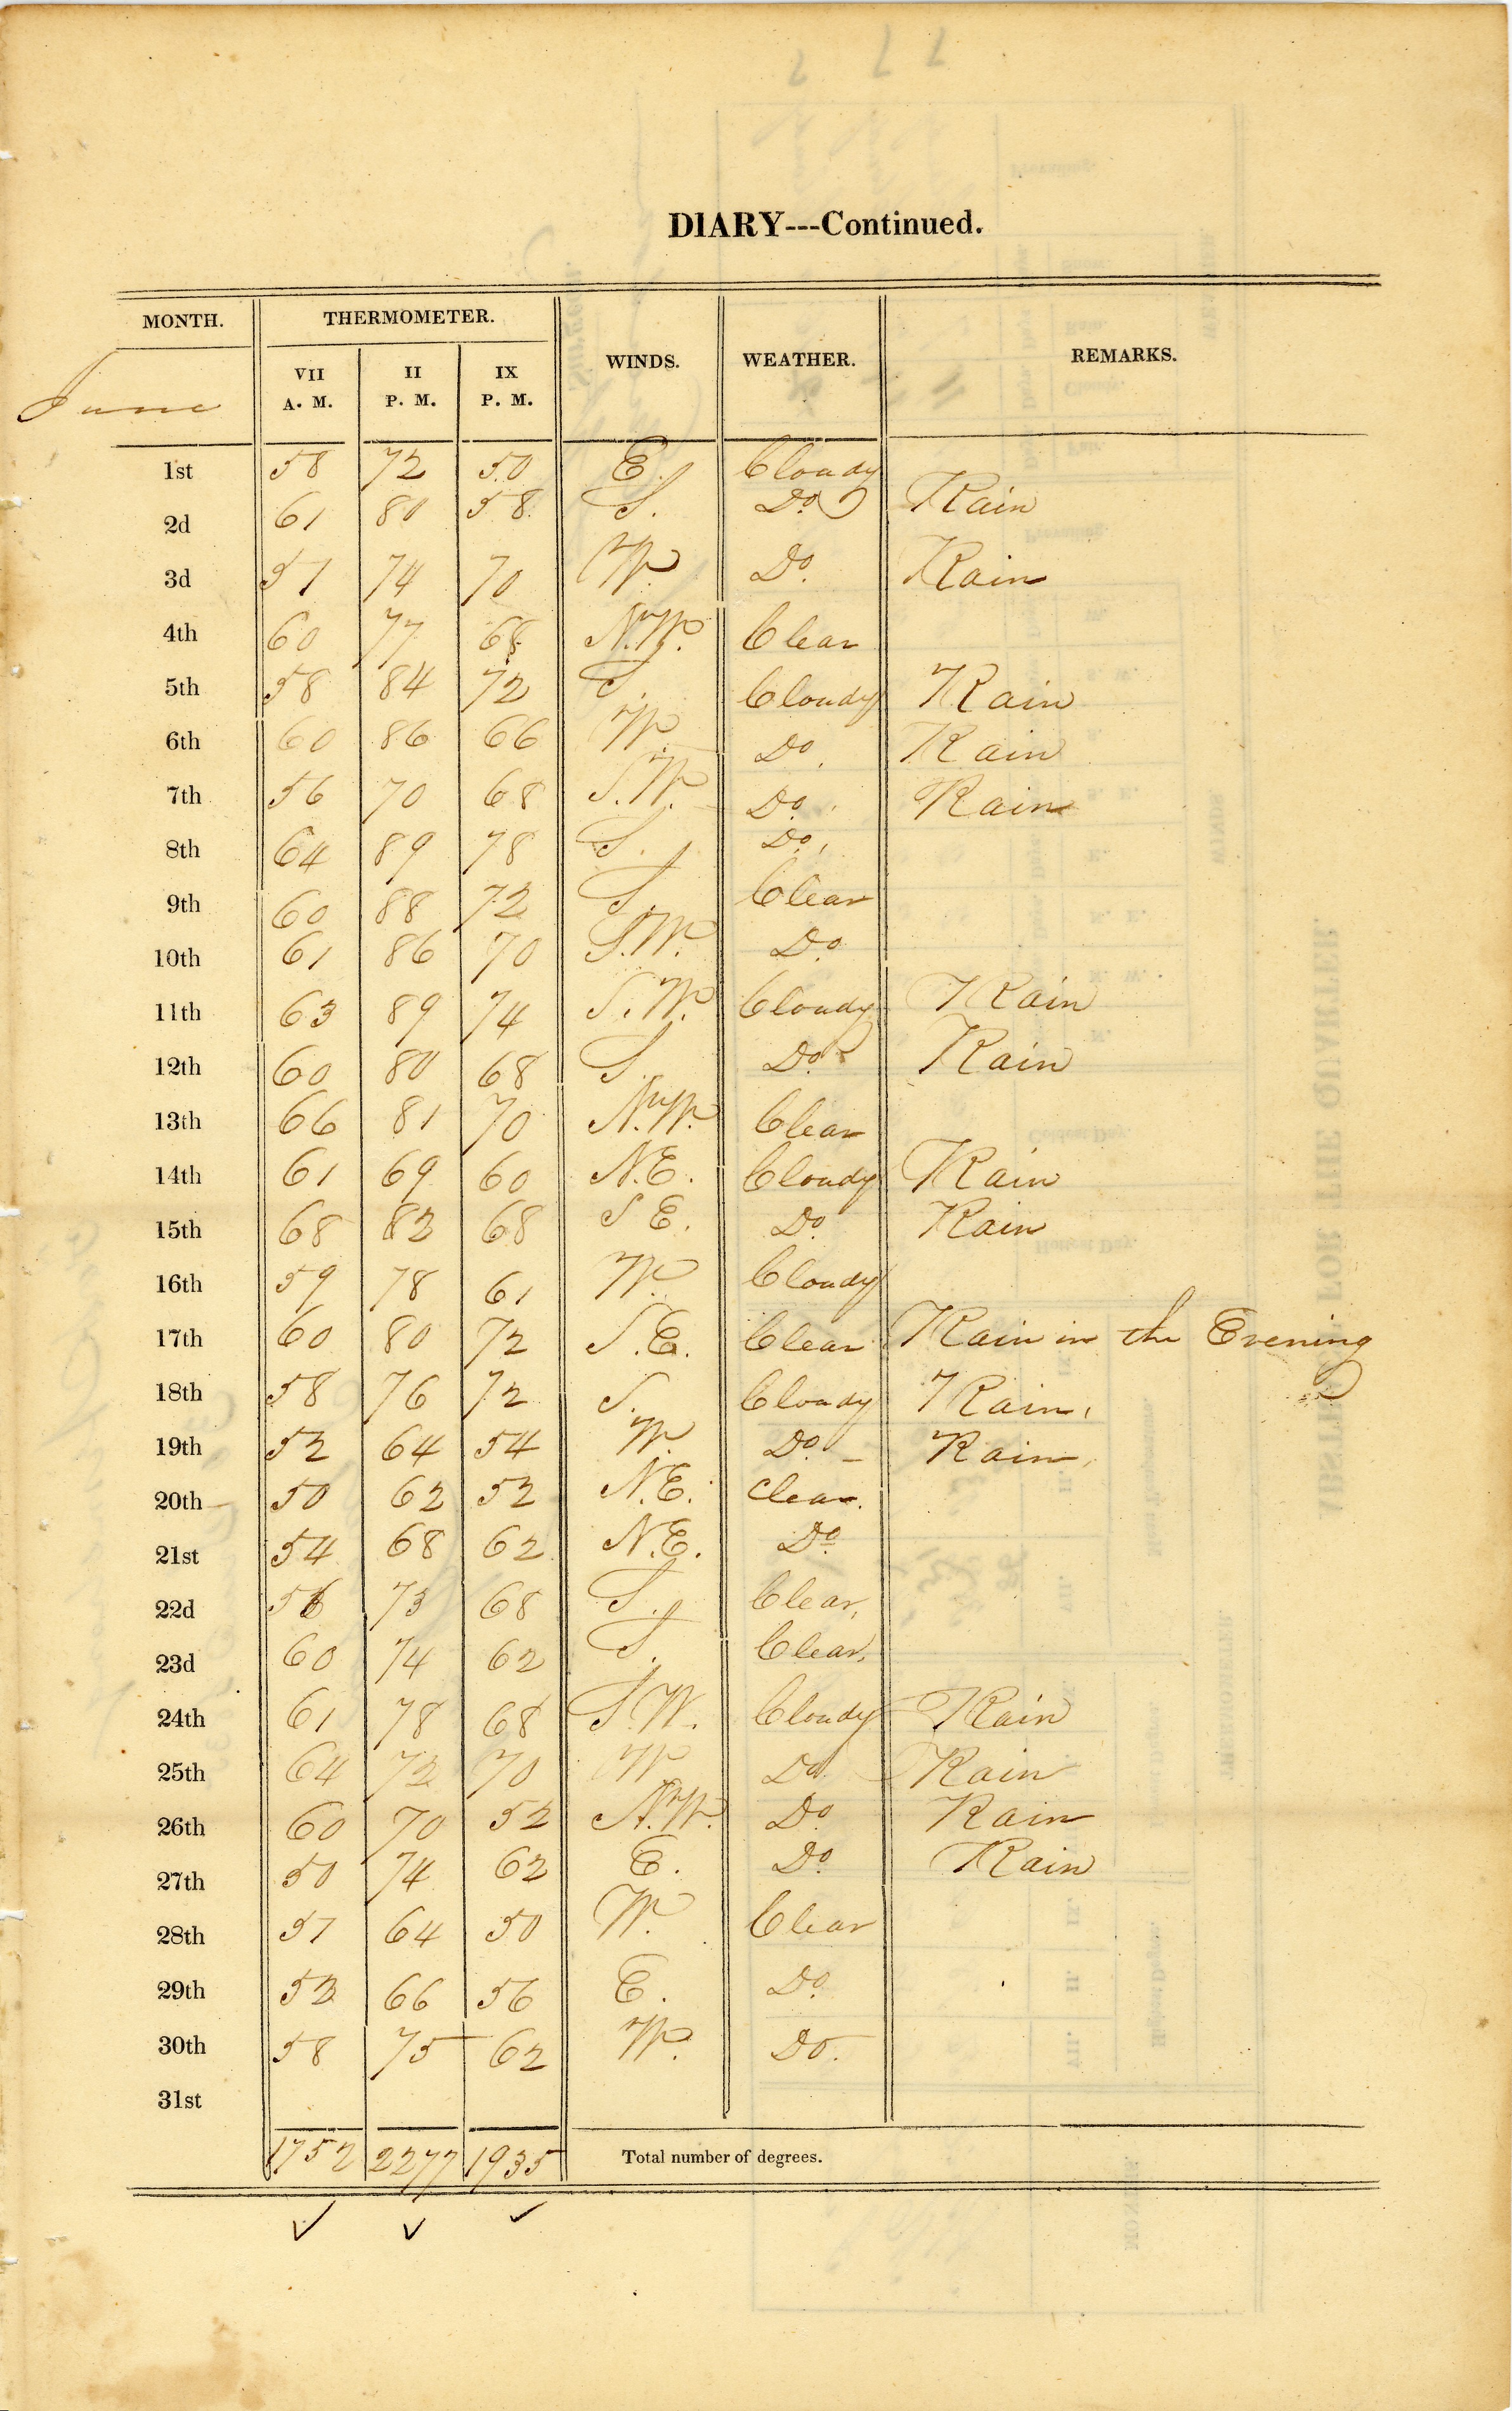 DIARY---Continued.
MONTH. THERMOMETER. WINDS. WEATHER. REMARKS.
June VII A. M. II P. M. IX P. M.
1st 58 72 50 E. Cloudy
2d 61 80 58 S. Do Rain
3d 51 74 70 W. Do. Rain
4th 60 77 68 N.W. Clear
5th 58 84 72 S. Cloudy Rain
6th 60 86 66 W. Do. Rain
7th 56 70 68 S.W. Do. Rain
8th 64 89 78 S. Do.
9th 60 88 72 S. Clear
10th 61 86 70 S.W. Do.
11th 63 89 74 S.W. Cloudy Rain
12th 60 80 68 S. Do. Rain
13th 66 81 70 N.W. Clear
14th 61 69 60 N.E. Cloudy Rain
15th 68 82 68 S E. Do. Rain
16th 59 78 61 W. Cloudy
17th 60 80 72 S.E. Clear Rain in the Evening
18th 58 76 72 S. Cloudy Rain,
19th 52 64 54 W. Do. Rain,
20th 50 62 52 N.E. Clear.
21st 54 68 62 N.E. Do.
22d 56 73 68 S. Clear,
23d 60 74 62 S. Clear,
24th 61 78 68 S.W. Cloudy Rain
25th 64 72 70 W Do. Rain
26th 60 70 52 N.W. Do. Rain
27th 50 74 62 E. Do. Rain
28th 51 64 50 W. Clear
29th 52 66 56 E. Do.
30th 58 75 62 W. Do.
31st
1752 2277 1935 Total number of degrees.